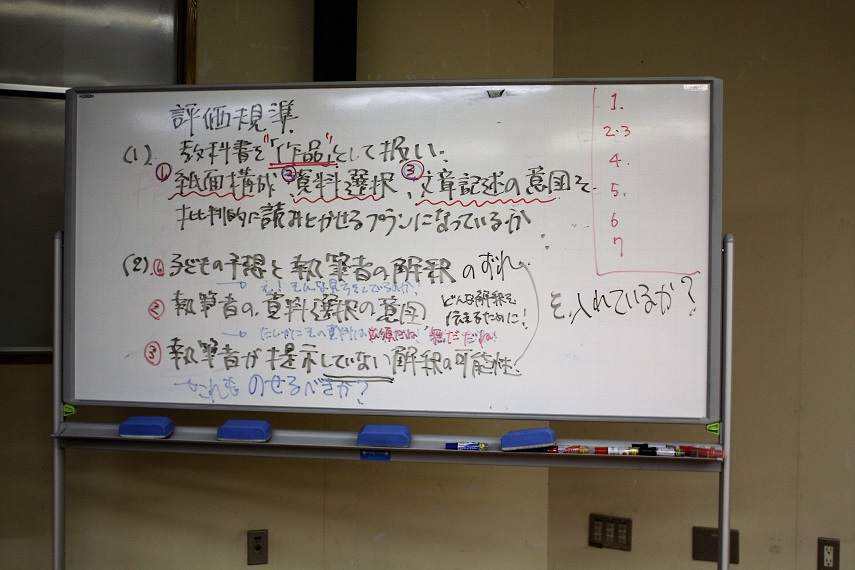 評価規準
(1). 教科書を"「作品」"として扱い、
①紙面構成 ②資料選択、③文章記述の意図を
批判的に読みとかせるプランになっているか
(2) ①子どもの予想と執筆者の解釈のずれ
え！そんな見方をしているのか！
②執筆者の資料選択の意図 どんな解釈を
伝えるために！
たしかにその資料は必須だね！
③執筆者が提示していない解釈の可能性
これものせるべきか？
を、入れているか？
1.
2.3
4.
5.
6
7